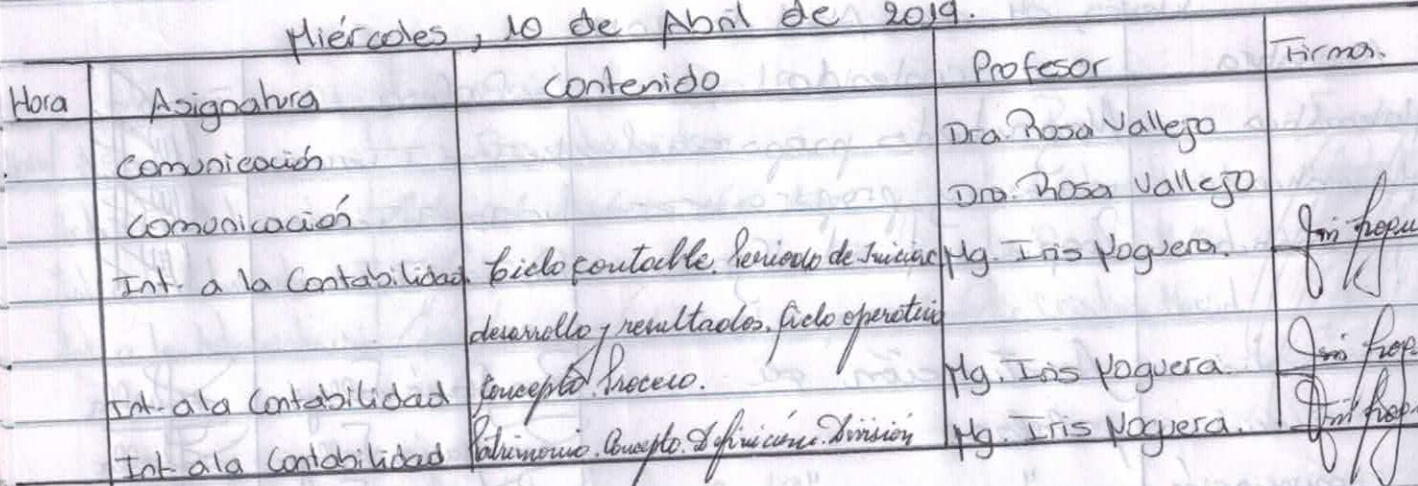 Miércoles, 10 de Abril de 2019.
Hora Asignatura Contenido Profesor Firma.
Comunicación Dra. Rosa Vallejo
Comunicación Dra. Rosa Vallejo
Int. a la Contabilidad Ciclo contable. Periodo de Inicio Mg. Iris Noguera.
desarrollo y resultados. Ciclo operativo
Int. a la Contabilidad Concepto. Proceso. Mg. Iris Noguera.
Int. a la Contabilidad Patrimonio. Concepto. Definición. División Mg. Iris Noguera.